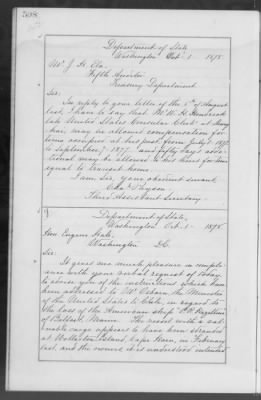 598
Department of State
Washington Oct. 1 1875.
Mr. J. H. Ela.
Fifth Auditor
Treasury Department.
Sir:
In reply to your letter of the 5th of August
last, I have to say that Mr. W. H.
late United States Consular Clerk at
may be allowed compensation for
time occupied at his post, from July 1, 187
to September 7, 187 and fifty days addi-
tional may be allowed to this time for time
equal to transit home.
I am Sir, your obedient servant
Chas Payson
Third Assistant Secretary.
Department of State,
Washington Oct. 1 1875
Hon. Eugene Hale,
Washington D.C.
Sir:
It gives me much pleasure in compli-
ance with your verbal request of today
to advise you of the instructions which have
been addressed to Mr. Osborn, the Minister
of the United States to Chile, in regard to
the loss of the American ship
of Maine. The vessel with a valu-
able cargo appears to have been stranded
at Wollaston Island, Cape Horn, in February
last, and the owners it is understood intended